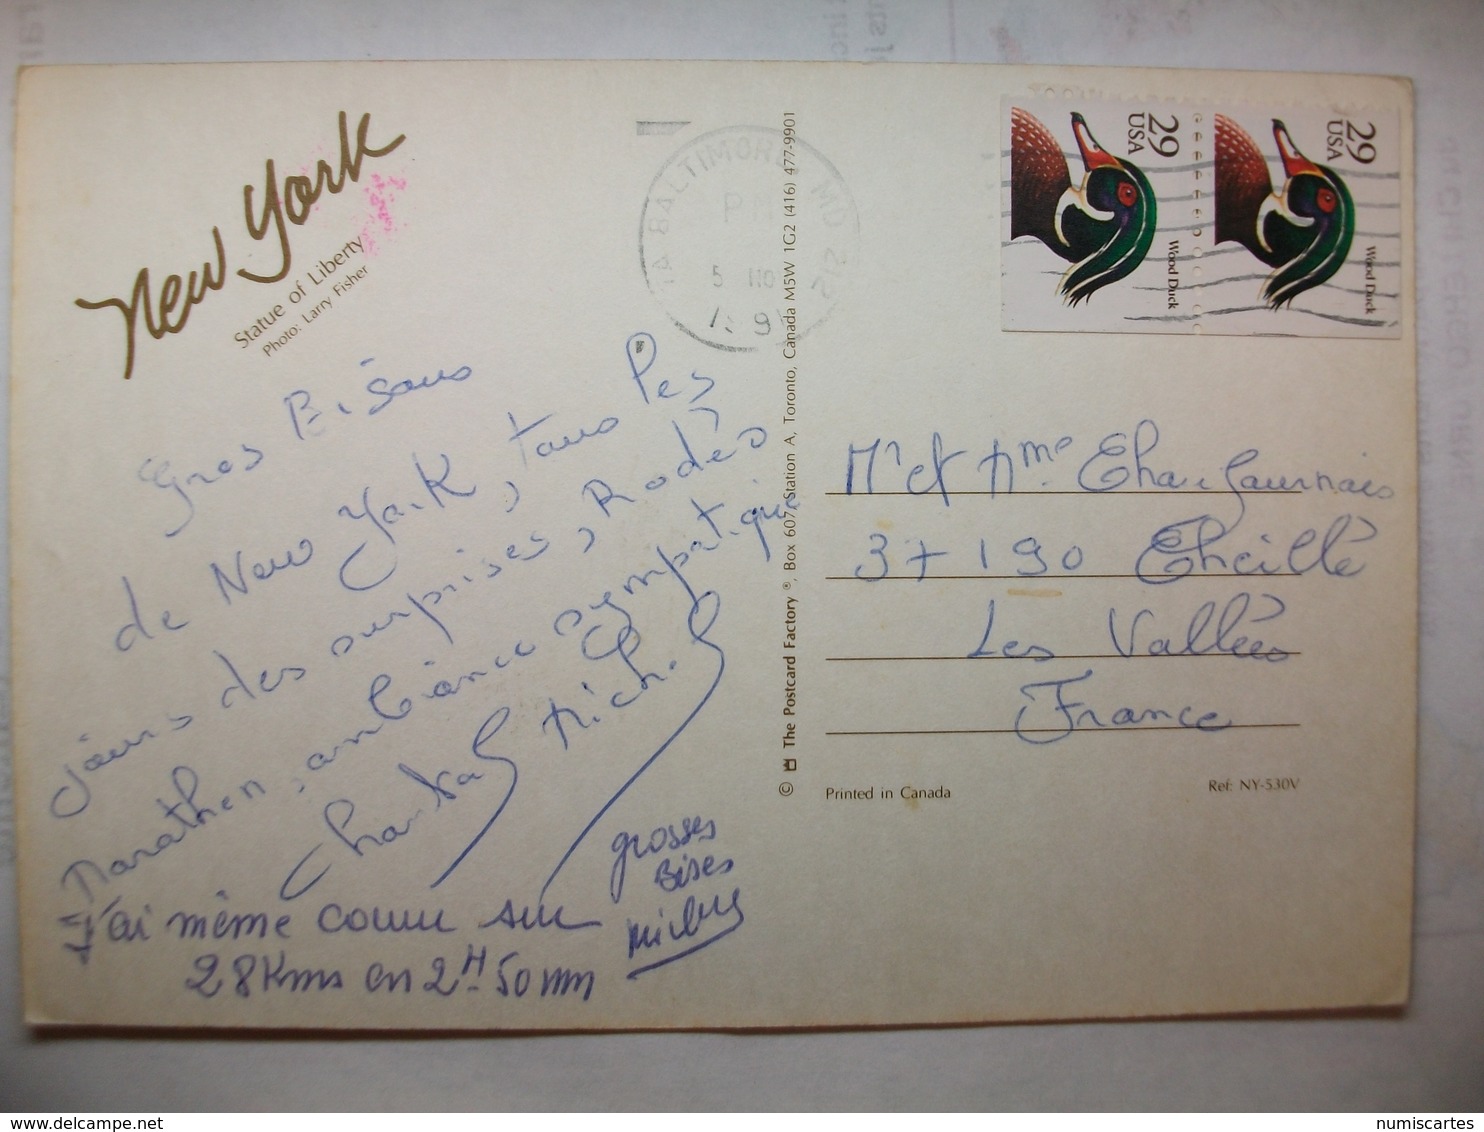 New York
Statue of Liberty
Photo: Larry Fisher
Gros Bisous
de New York, tous les
jours des surprises, Rodéo
Marathon, ambiance sympatique
Chantal Michel
J'ai même couru sur
28 Kms en 2H 50 mn
grosses
Bises
© The Postcard Factory ®, Box 607, Station A, Toronto, Canada M5W 1G2 (416) 477-9901
BALTIMORE MD 212
PM
5
29
USA
Wood Duck
29
USA
Wood Duck
Mr et Mme
37190 Cheillé
Les Vallées
France
Printed in Canada
Ref: NY-530V
numiscartes